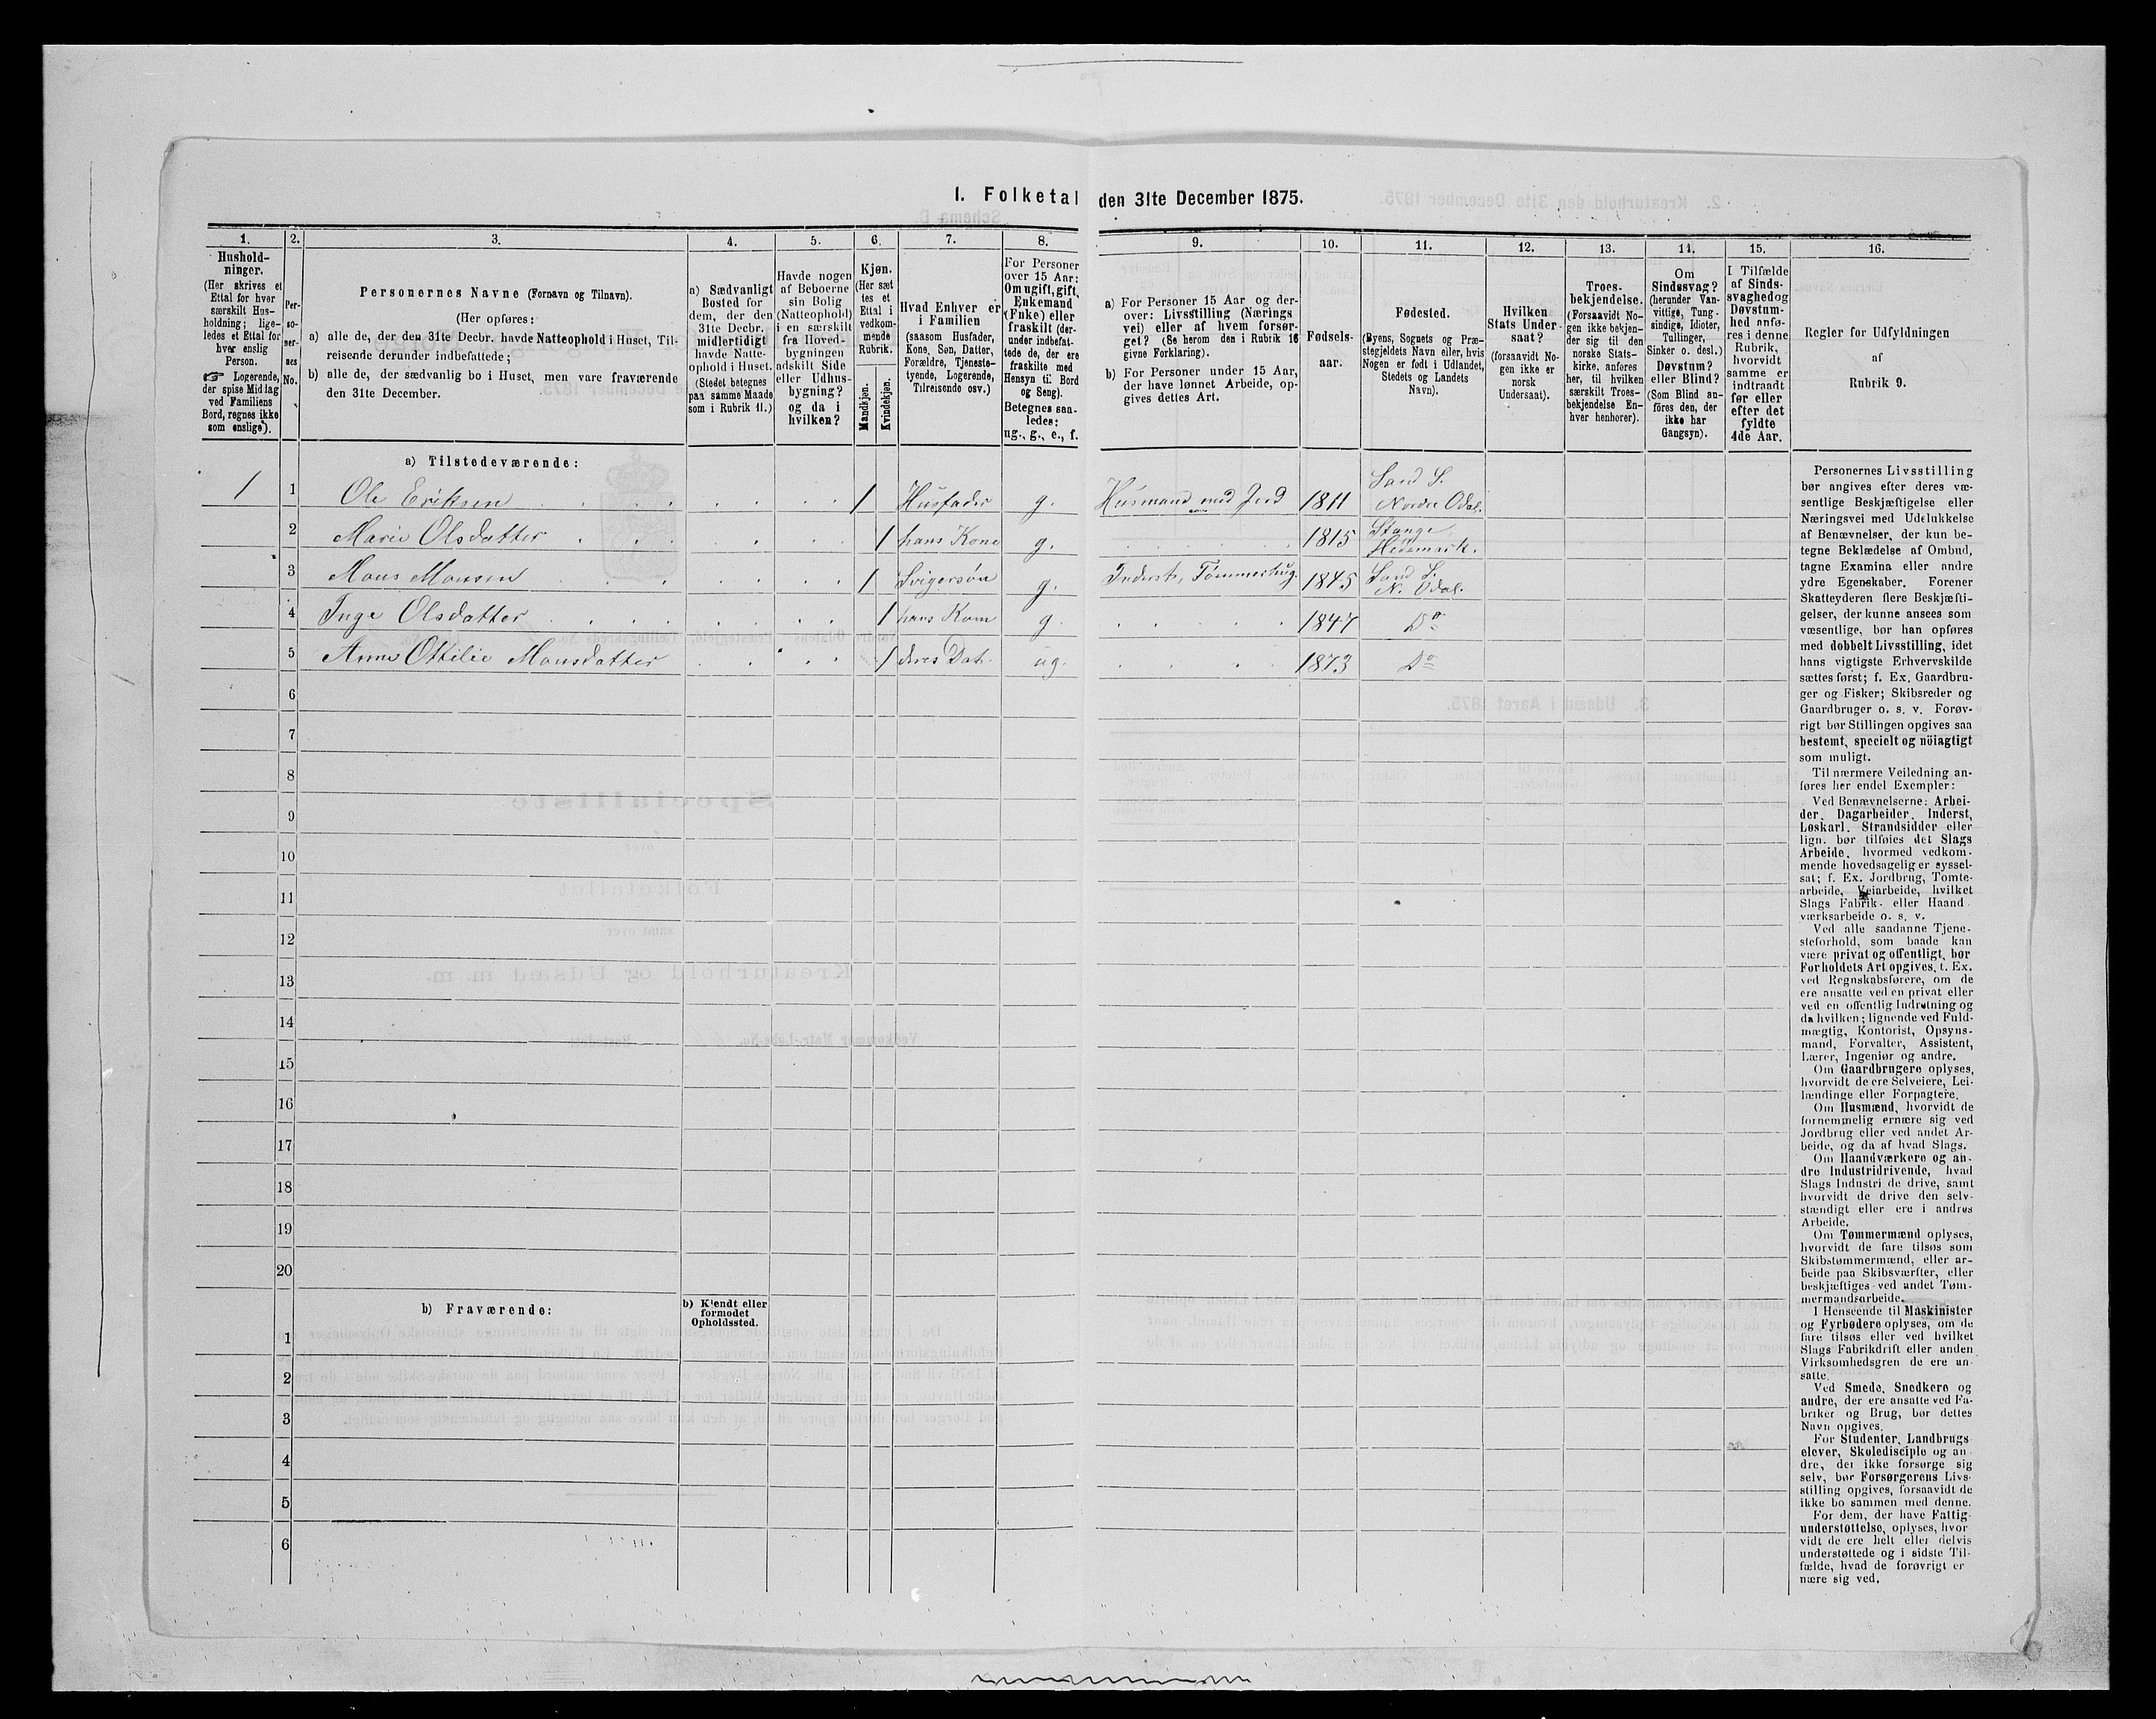 1. Folketal den 31te December 1875.
1.
Hushold-
ninger.
(Her skrives et
Ettal for hver
særskilt Hus-
holdning; lige-
ledes et Ettal for
hver enslig
Person.
☞ Logerende,
der spise Middag
ved Familiens
Bord, regnes ikke
som enslige).
2.
Per-
so-
ner-
nes
No.
3.
Personernes Navne (Fornavn og Tilnavn).
(Her opføres:
a) alle de, der den 31te Decbr. havde Natteophold i Huset, Til-
reisende derunder indbefattede;
b) alle de, der sædvanlig bo i Huset, men vare fraværende
den 31te December.
4.
a) Sædvanligt
Bosted for
dem, der den
31te Decbr.
midlertidigt
havde Natte-
ophold i Huset.
(Stedet betegnes
paa samme Maade
som i Rubrik 11.)
5.
Havde nogen
af Beboerne
sin Bolig
(Natteophold)
i en særskilt
fra Hoved-
bygningen
adskilt Side
eller Udhus-
bygning?
og da i
hvilken?
6.
Kjøn.
(Her sæt
tes et
Ettal i
vedkom-
mende
Rubrik.
Mandkjøn.
Kvindekjøn.
7.
Hvad Enhver er
i Familien
(saasom Husfader,
Kone, Søn, Datter,
Forældre, Tjeneste-
tyende, Logerende,
Tilreisende osv.)
8.
For Personer
over 15 Aar:
Om ugift, gift,
Enkemand
(Enke) eller
fraskilt (der-
under indbefat-
tede de, der ere
fraskilte med
Hensyn til Bord
og Seng).
Betegnes saa-
ledes:
ug., g., e., f.
9.
a) For Personer 15 Aar og der-
over: Livsstilling (Nærings
vei) eller af hvem forsør-
get? (Se herom den i Rubrik 16
givne Forklaring).
b) For Personer under 15 Aar,
der have lønnet Arbeide, op-
gives dettes Art.
10.
Fødsels-
aar.
11.
Fødested.
(Byens, Sognets og Præ-
stegjeldets Navn eller, hvis
Nogen er født i Udlandet,
Stedets og Landets
Navn).
12.
Hvilken
Stats Under-
saat?
(forsaavidt No-
gen ikke er
norsk
Undersaat).
13.
Troes-
bekjendelse.
(Forsaavidt No-
gen ikke bekjen-
der sig til den
norske Stats-
kirke, anføres
her, til hvilken
særskilt Troes-
bekjendelse En-
hver henhører).
14.
Om
Sindssvag?
(herunder Van-
vittige, Tung-
sindige, Idioter,
Tullinger,
Sinker o. desl.)
Døvstum?
eller Blind?
(Som Blind an-
föres den, der
ikke har
Gangsyn).
15.
I Tilfælde
af Sinds-
svaghed og
Døvstum-
hed anfø-
res i denne
Rubrik,
hvorvidt
samme er
indtraadt
før eller
efter det
fyldte
4de Aar.
16.
Regler for Udfyldningen
af
Rubrik 9.
a) Tilstedeværende:
1 1 Ole Eriksen 1 Husfader g. Husmand med Jord 1811 Sand S. Nordre Odal.
2 Marie Olsdatter 1 hans Kone g. 1815 Stange Hedemark.
3 Mons Monsen 1 Svigersøn g. Inderst, Tømmerhug. 1845 Sand S. N. Odal.
4 Inge Olsdatter 1 hans Kone g. 1847 Do
5 Anne Ottilie Monsdatter 1 deres Dat. ug. 1873 Do
6
7
8
9
10
11
12
13
14
15
16
17
18
19
20
b) Fraværende:
b) Kjendt eller
formodet
Opholdssted.
1
2
3
4
5
6
Personernes Livsstilling
bør angives efter deres væ-
sentlige Beskjæftigelse eller
Næringsvei med Udelukkelse
af Benævnelser, der kun be-
tegne Beklædelse af Ombud,
tagne Examina eller andre
ydre Egenskaber. Forener
Skatteyderen flere Beskjæfti-
gelser, der kunne ansees som
væsentlige, bør han opføres
med dobbelt Livsstilling, idet
hans vigtigste Erhvervskilde
sættes først; f. Ex. Gaardbru-
ger og Fisker; Skibsreder og
Gaardbruger o. s. v. Forøv-
rigt bør Stillingen opgives saa
bestemt, specielt og nöiagtigt
som muligt.
Til nærmere Veiledning an-
føres her endel Exempler:
Ved Benævnelserne: Arbei-
der, Dagarbeider, Inderst,
Løskarl, Strandsidder eller
lign. bør tilføies det Slags
Arbeide, hvormed vedkom-
mende hovedsagelig er syssel-
sat; f. Ex. Jordbrug, Tomte-
arbeide, Veiarbeide, hvilket
Slags Fabrik- eller Haand
værksarbeide o. s. v.
Ved alle saadanne Tjene-
steforhold, som baade kan
være privat og offentligt, bør
Forholdets Art opgives, t. Ex.
ved Regnskabsførere, om de
ere ansatte ved en privat eller
ved en offentlig Indretning og
da hvilken; lignende ved Fuld-
mægtig, Kontorist, Opsyns-
mand, Forvalter, Assistent,
Lærer, Ingeniør og andre.
Om Gaardbrugere oplyses,
hvorvidt de ere Selveiere, Lei-
lændinge eller Forpagtere.
Om Husmænd, hvorvidt de
fornemmelig ernære sig ved
Jordbrug eller ved andet Ar-
beide, og da af hvad Slags.
Om Haandværkere og an-
dre Industridrivende, hvad
Slags Industri de drive, samt
hvorvidt de drive den selv-
stændigt eller ere i andres
Arbeide.
Om Tømmermænd oplyses,
hvorvidt de fare tilsøs som
Skibstømmermænd, eller ar-
beide paa Skibsværfter, eller
beskjæftiges ved andet Tøm-
mermandsarbeide.
I Henseende til Maskinister
og Fyrbødere oplyses, om de
fare tilsøs eller ved hvilket
Slags Fabrikdrift eller anden
Virksomhedsgren de ere an-
satte.
Ved Smede, Snedkere og
andre, der ere ansatte ved Fa-
briker og Brug, bør dettes
Navn opgives.
For Studenter, Landbrugs
elever, Skoledisciple og an
dre, der ikke forsørge sig
selv, bør Forsørgerens Livs-
stilling opgives, forsaavidt de
ikke bo sammen med denne.
For dem, der have Fattig-
understøttelse, oplyses, hvor
vidt de ere helt eller delvis
understøttede og i sidste Til-
fælde, hvad de forøvrigt er
nære sig ved.